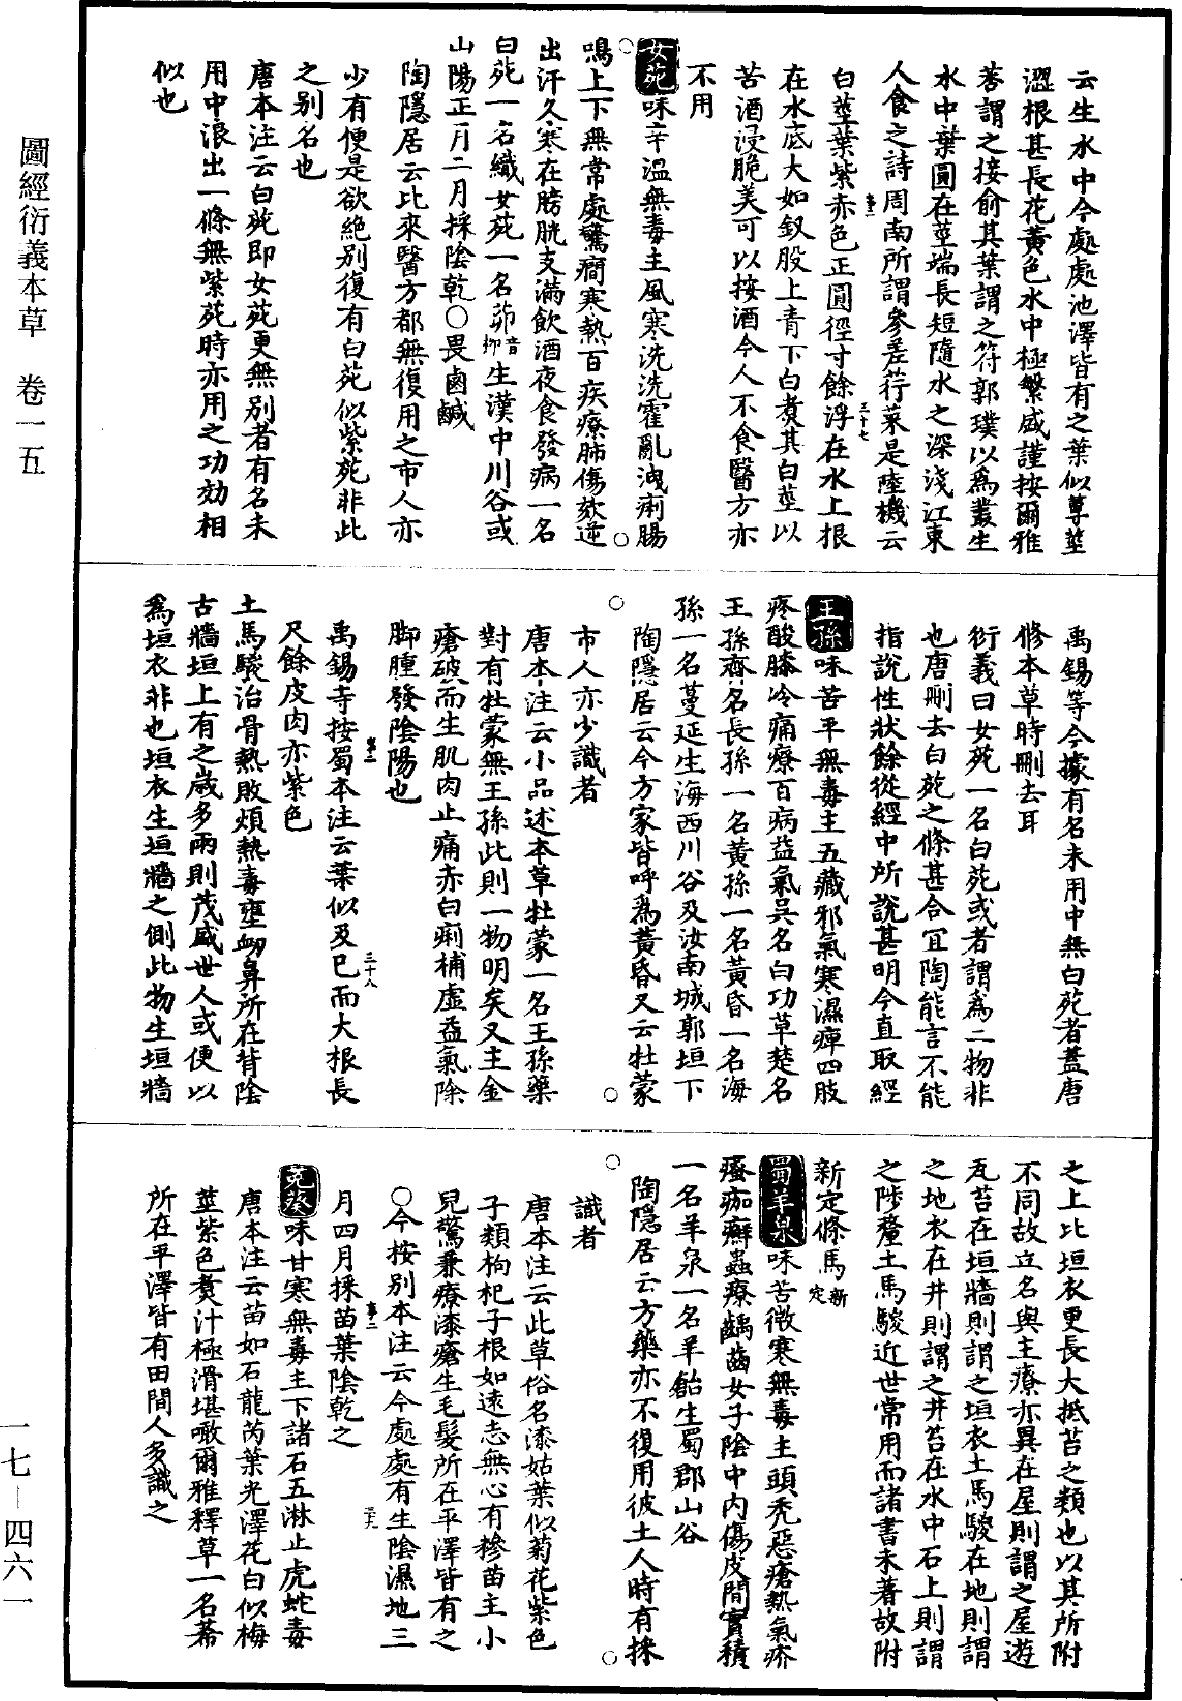 云生水中今處處池澤皆有之葉似蓴莖
澀根甚長花黃色水中極繁盛謹按爾雅
莕謂之接余其葉謂之苻郭璞以爲叢生
水中葉圓在莖端長短隨水之深淺江東
人食之詩周南所謂參差荇菜是陸機云
白莖葉紫赤色正圓徑寸餘浮在水上根
在水底大如釵股上青下白煑其白莖以
苦酒浸脆美可以按酒今人不食醫方亦
不用
女菀味辛溫無毒主風寒洗洗霍亂洩痢腸
鳴上下無常處驚癇寒熱百疾療肺傷欬逆
出汗久寒在膀胱支滿飲酒夜食發病一名
白菀一名織女菀一名茆音柳生漢中川谷或
山陽正月二月採陰乾〇畏鹵鹹
陶隱居云比來醫方都無復用之市人亦
少有便是欲絶別復有白菀似紫菀非此
之别名也
唐本注云白菀即女菀更無別者有名未
用中浪出一條無紫菀時亦用之功効相
似也
禹錫等今據有名未用中無白菀者蓋唐
修本草時刪去耳
衍義曰女菀一名白菀或者謂爲二物非
也唐刪去白菀之條甚合宜陶能言不能
指說性狀餘從經中所說甚明今直取經
王孫味苦平無毒主五藏邪氣寒濕痺四肢
疼酸膝冷痛療百病益氣吳名白功草楚名
王孫齊名長孫一名黃孫一名黃昏一名海
孫一名蔓延生海西川谷及汝南城郭垣下
陶隱居云今方家皆呼爲黃昏又云牡蒙
市人亦少識者
唐本注云小品述本草牡蒙一名王孫藥
對有牡蒙無王孫此則一物明矣又主金
瘡破而生肌肉止痛赤白痢補虛益氣除
脚腫發陰陽也
禹錫等按蜀本注云葉似及巳而大根長
尺餘皮肉亦紫色
土馬騣治骨熱敗煩熱毒壅衂鼻所在背陰
古牆垣上有之歲多雨則茂盛世人或便以
爲垣衣非也垣衣生垣牆之側此物生垣牆
之上比垣衣更長大抵苔之類也以其所附
不同故立名與主療亦異在屋則謂之屋遊
瓦苔在垣牆則謂之垣衣土馬騣在地則謂
之地衣在井則謂之井苔在水中石上則謂
之陟釐土馬騣近世常用而諸書未著故附
新定條馬新定
蜀羊泉味苦微寒無毒主頭秃惡瘡熱氣疥
瘙痂癬蟲療齲齒女子陰中內傷皮間實積
一名羊泉一名羊飴生蜀郡山谷
陶隱居云方藥亦不復用彼土人時有採
識者
唐本注云此草俗名漆姑葉似菊花紫色
子類枸杞子根如遠志無心有糝苗主小
兒驚兼療漆瘡生毛髮所在平澤皆有之
〇今按別本注云今處處有生陰濕地三
月四月採苗葉陰乾之
兎葵味甘寒無毒主下諸石五淋止虎蛇毒
唐本注云苗如石龍芮葉光澤花白似梅
莖紫色煑汁極滑堪噉爾雅釋草一名莃
所在平澤皆有田間人多識之
圖經衍義本草　卷一五
一七—四六一